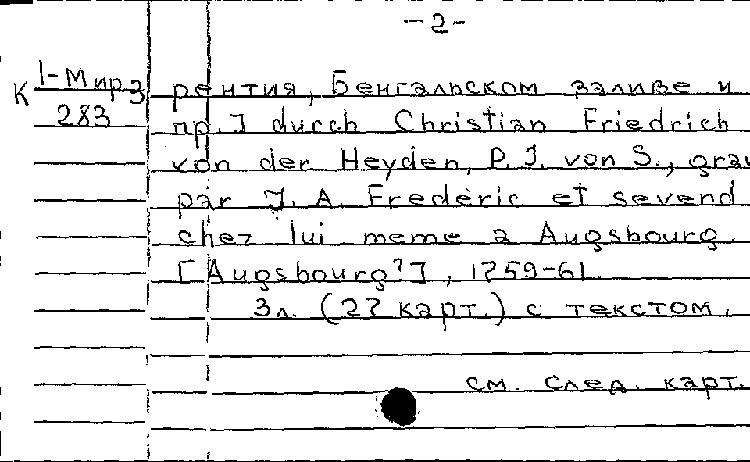 -2-
К 1-Мир3
283
рентия, Бенгальском заливе и
пр.] durch Christian Friedrich
von der Heyden, P. J. von S., grav
par J. A. Frederic et sevend
chez lui meme a Augsbourg
[Augsbourg?], 1759-61.
3л. (27 карт.) с текстом.
см. след. карт.